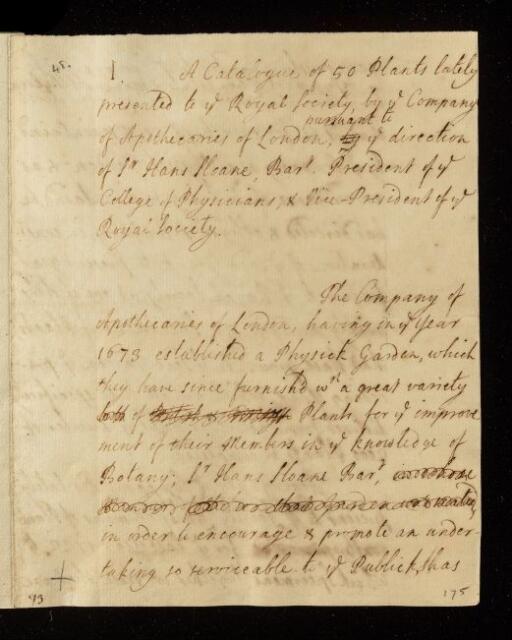 48.
1. A Catalogue of 50 Plants lately
presented to yͤ Royal Society, by yͤ Company
pursuant to
of Apothecaries of London, by yͤ direction
of Sʳ Hans Sloane, Barᵗ. President of yͤ
College of Physicians, & Vice-President of yͤ
Royal Society.
The Company of
Apothecaries of London, having in yͤ Year
1673 established a Physick Garden, which
they have since furnish'd wᵗʰ a great variety
both of British & Plants, for yͤ improve
ment of their Members in yͤ knowledge of
Botany; Sʳ Hans Sloane Barᵗ, in whose
Mannor
in order to encourage & promote an under-
taking so serviceable to yͤ Publick, has
93
175